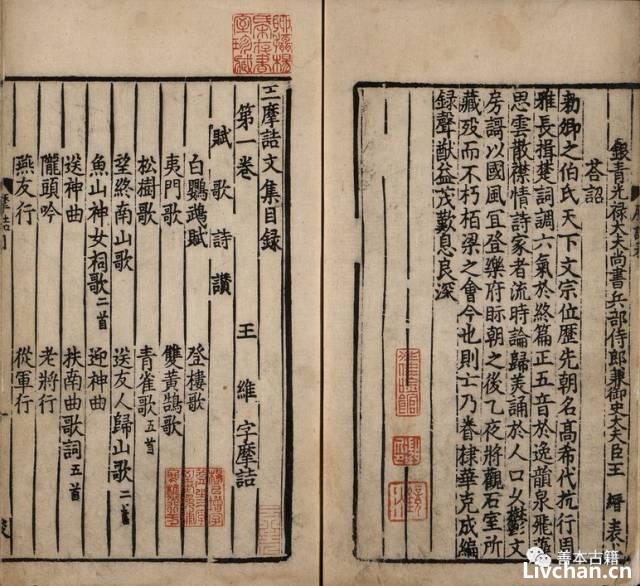 銀青光禄大夫尚書兵部侍郎兼御史大夫臣王縉表
荅詔
勑卿之伯氏天下文宗位歴先朝名髙希代抗行周
雅長揖楚詞調六氣於終篇正五音於逸韻泉飛藻
思雲散襟情詩家者流時論歸羙誦於人口乆欝文
房謌以國風冝登樂府眎朝之後乙夜將觀石室所
藏殁而不朽柏梁之會今也則亡乃眷棣華克成編
録聲猷益茂歎息良深
王摩詰文集目録
第一卷 王維字摩詰
賦歌詩讃
白鸚鵡賦 登樓歌
夷門歌 雙黃鵠歌
松樹歌 青雀歌五首
望終南山歌 送友人歸山歌二首
魚山神女祠歌二首 迎神曲
送神曲 扶南曲歌詞五首
隴頭吟 老將行
燕友行 從軍行
善本古籍
Livchan.cn